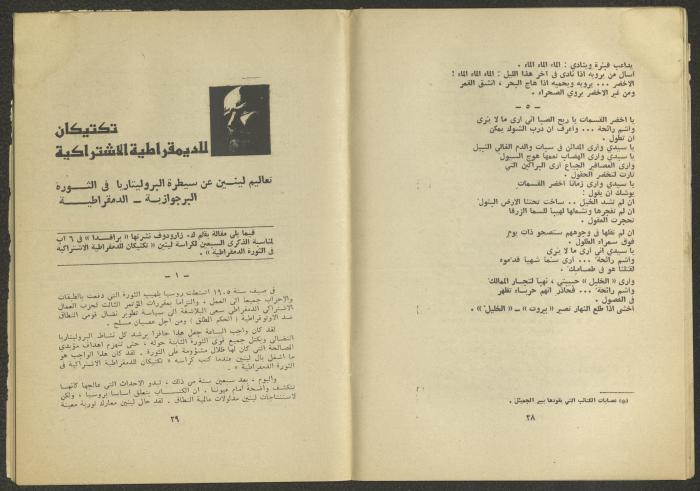 يداعب قبرة وينادي : الماء الماء الماء .
اسأل من يرويه اذا نادى في آخر هذا الليل : الماء الماء الماء !
الاخضر ... يرويه ويحميه اذا هاج البحر ، انشق القمر
ومن غير الاخضر يروي الصحراء .
ـ ٥ ـ
يا اخضر القسمات يا ربح الصبا اني ارى ما لا يرى
واشم رائحة ... واعرف ان درب الشوك يمكن
ان تطول .
يا سيدي وارى المدائن في سبات والدم الغالي النبيل
يا سيدي وارى الهضاب تعمها هوج السيول
وارى العصافير الجياع ارى البراكين التي
ثارت لتخضر الحقول .
يا سيدي وارى زمانا اخضر القسمات
يوشك ان يقول :
ان لم تشد الخيل .. ساخت تحتنا الارض البتول
ان لم نفجرها ونشعلها لهيبا للسما الزرقا
تحجرت العقول .
ان لم نقلها في وجوههم ستصحو ذات يوم
فوق سمراء الطلول .
يا سيدي اني ارى ما لا يرى
واشم رائحة ... ارى سما شهيا قدموه
لقتلنا هو في طعامك .
وارى « الخليل » حبيبتي ، نهبا لتجار الممالك
واشم رائحة ... فحاذر انهم حرباء تظهر
في الفصول .
اخشى اذا طلع النهار تصير « بيروت » ــ « الخليل » .
(*) عصابات الكتائب التي يقودها بيير الجميل .
٢٨
تكتيكان
للديمقراطية الاشتراكية
تعاليم لينين عن سيطرة البروليتاريا في الثورة
البرجوازية ــ الدمقراطية
فيما يلي مقالة بقلم ك. زارودوف نشرتها « برافدا » في ٦ اب
لمناسبة الذكرى السبعين لكراسة لينين « تكتيكان للدمقراطية الاشتراكية
في الثورة الدمقراطية » .
ـ ١ ـ
في صيف سنة ١٩٠٥ اشتعلت روسيا بلهيب الثورة التي دفعت بالطبقات
والاحزاب جميعا الى العمل ، والتزاما بمقررات المؤتمر الثالث لحزب العمال
الاشتراكي الدمقراطي سعى البلاشفة الى سياسة تطوير نضال قومي النطاق
ضد الاوتوقراطية ( الحكم المطلق ) ومن اجل عصيان مسلح .
لقد كان واجب الساعة جعل هذا حافزا يرشد كل نشاط البروليتاريا
النضالي وتكتل جميع قوى الثورة الثابتة حوله ، حتى تنهزم اهداف مؤيدي
المصالحة التي كان لها ظلال مشؤومة على الثورة . لقد كان هذا الواجب هو
ما اشغل بال لينين عندما كتب كراسه « تكتيكان للدمقراطية الاشتراكية في
الثورة الدمقراطية » .
واليوم ، بعد سبعين سنة من ذلك ، تبدو الاحداث التي عالجها كانها
تتكشف واضحة امام عيوننا . ان الكتاب يتعلق اساسا بروسيا ، ولكن
لاستنتاجات لينين مدلولات عالمية النطاق . لقد حلل لينين معارك ثورية معينة
٢٩